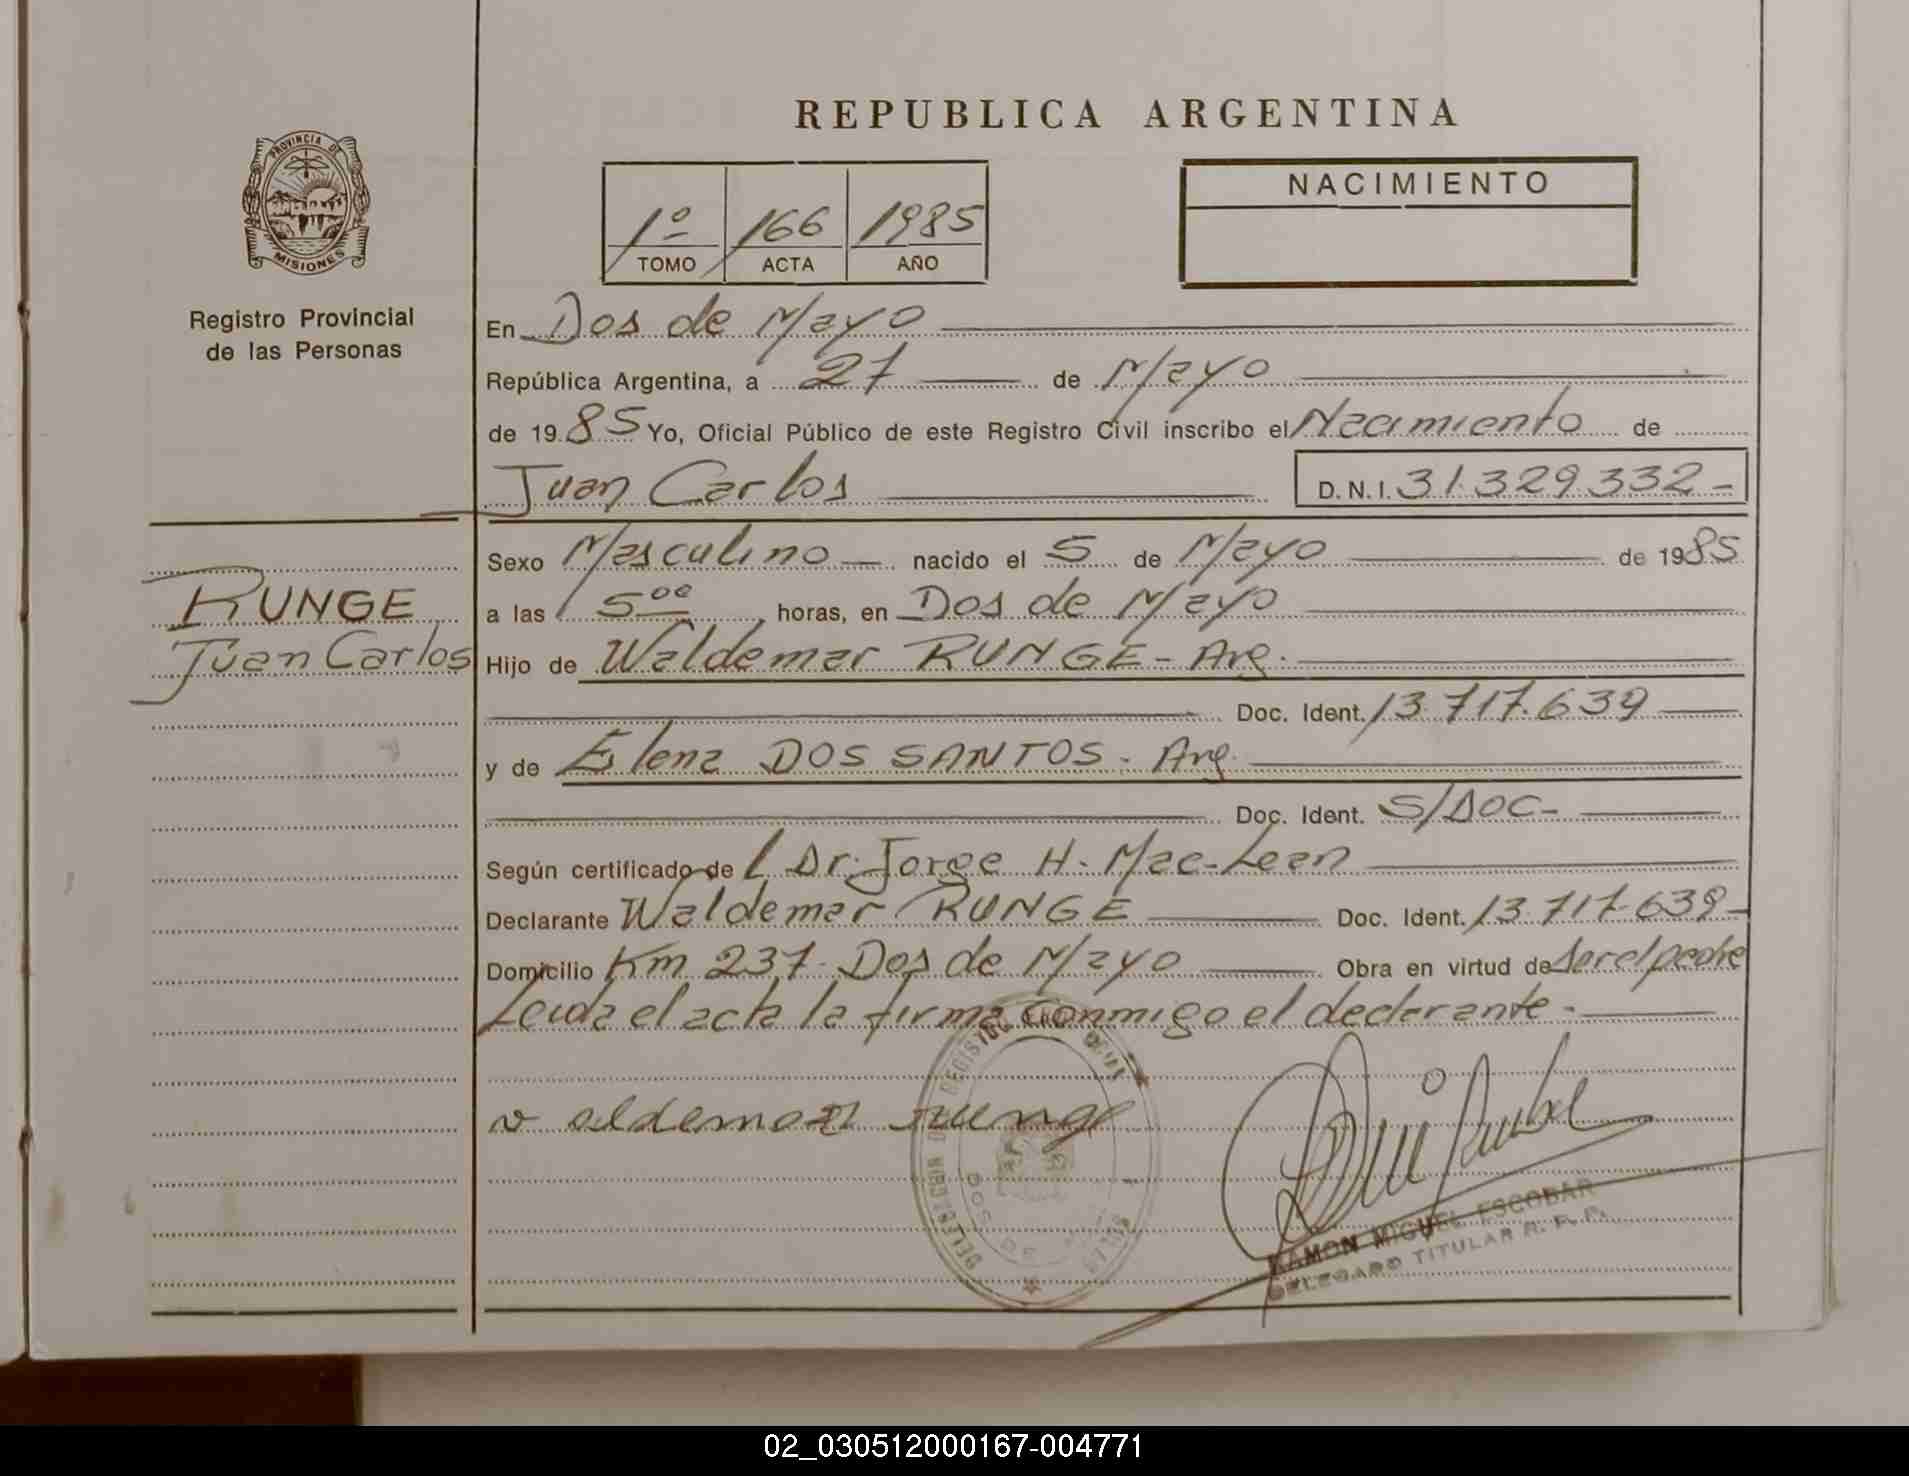 REPUBLICA ARGENTINA
PROVINCIA DE
MISIONES
Registro Provincial
de las Personas
1º 166 1985
TOMO ACTA AÑO
NACIMIENTO
En Dos de Mayo
República Argentina, a 27 de Mayo
de 1985 Yo, Oficial Público de este Registro Civil inscribo el Nacimiento de
Juan Carlos D.N.I. 31.329.332-
RUNGE
Juan Carlos
Sexo Masculino nacido el 5 de Mayo de 1985
a las 5 oo horas, en Dos de Mayo
Hijo de Waldemar RUNGE - Arg.
Doc. Ident. 13.717.639
y de Elena DOS SANTOS. Arg.
Doc. Ident. S/DOC-
Según certificado de l Dr. Jorge H. Mac-Lean
Declarante Waldemar RUNGE Doc. Ident. 13.717.639-
Domicilio Km 237. Dos de Mayo Obra en virtud de ser el padre
Leida el acta la firma conmigo el declarante.-
waldemar runge
RAMON MIGUEL ESCOBAR
DELEGADO TITULAR R. P. P.
02_030512000167-004771